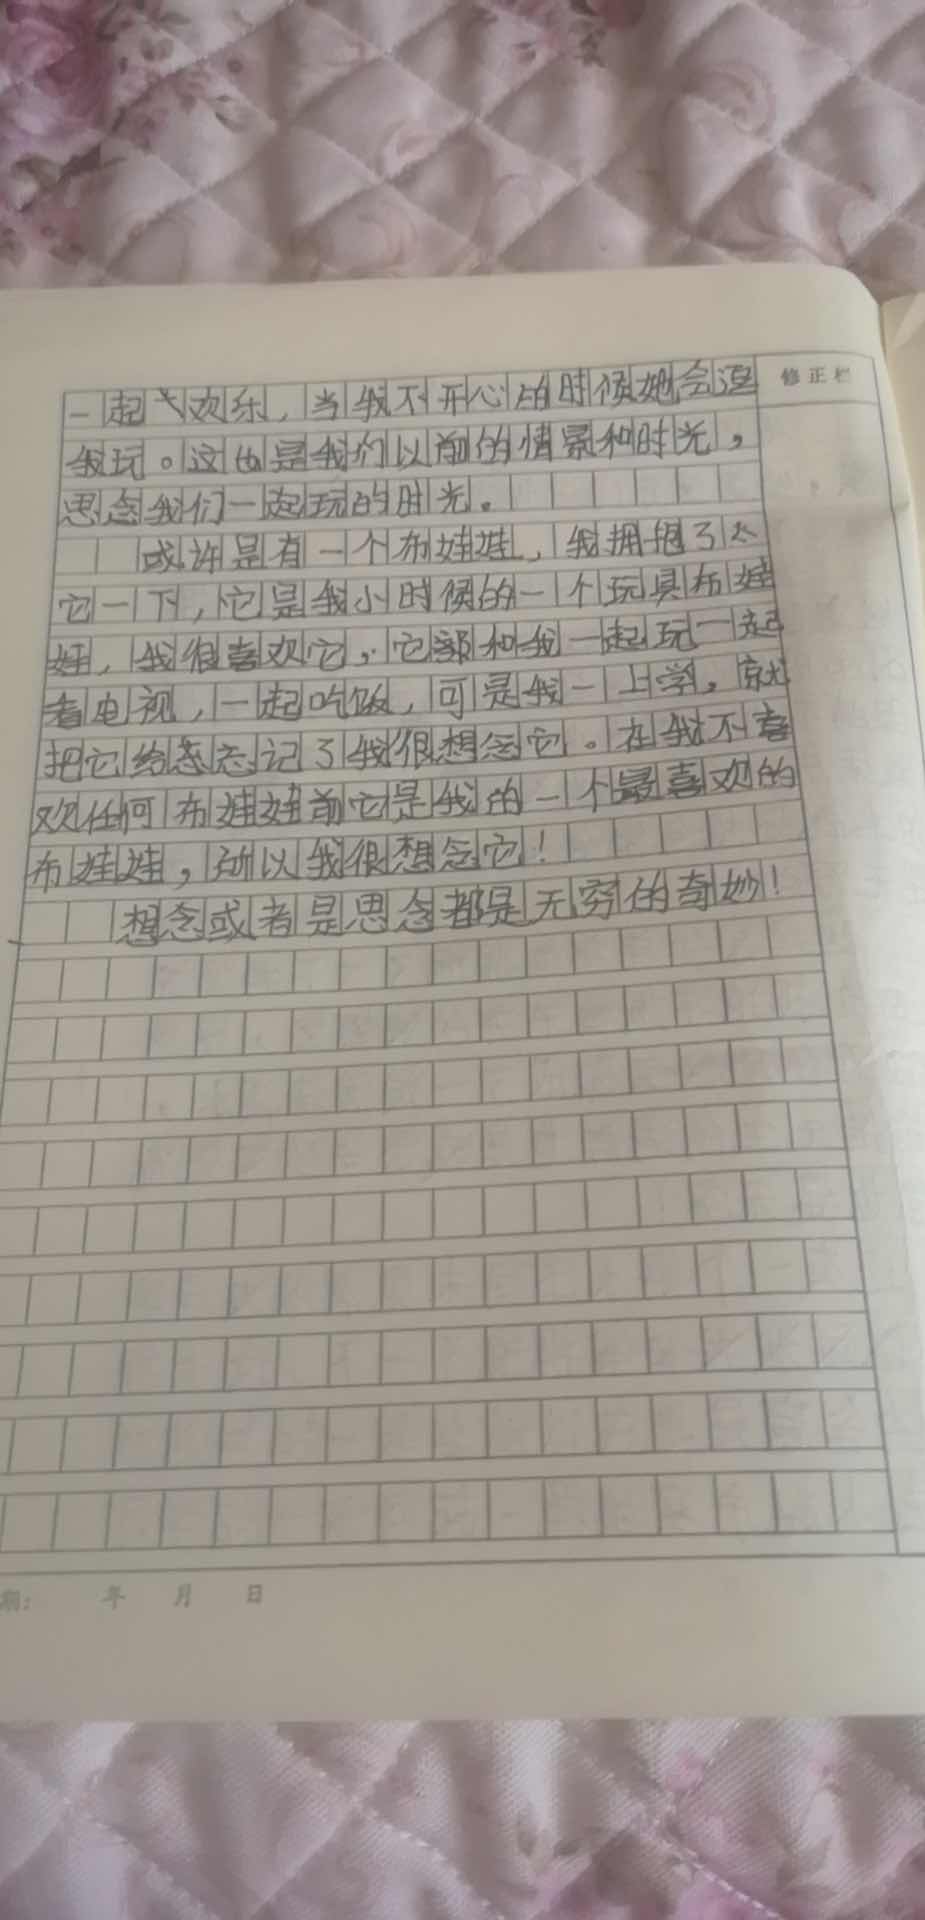 一起欢乐，当我不开心的时候她会逗
修正栏
我玩。这也是我们以前的情景和时光，
思念我们一起玩的时光。
或许是有一个布娃娃，我拥抱了
它一下，它是我小时候的一个玩具布娃
娃，我很喜欢它，它都和我一起玩一起
看电视，一起吃饭，可是我一上学，就
把它给忘记了我很想念它。在我不喜
欢任何布娃娃前它是我的一个最喜欢的
布娃娃，所以我很想念它！
想念或者是思念都是无穷的奇妙！
期： 年 月 日